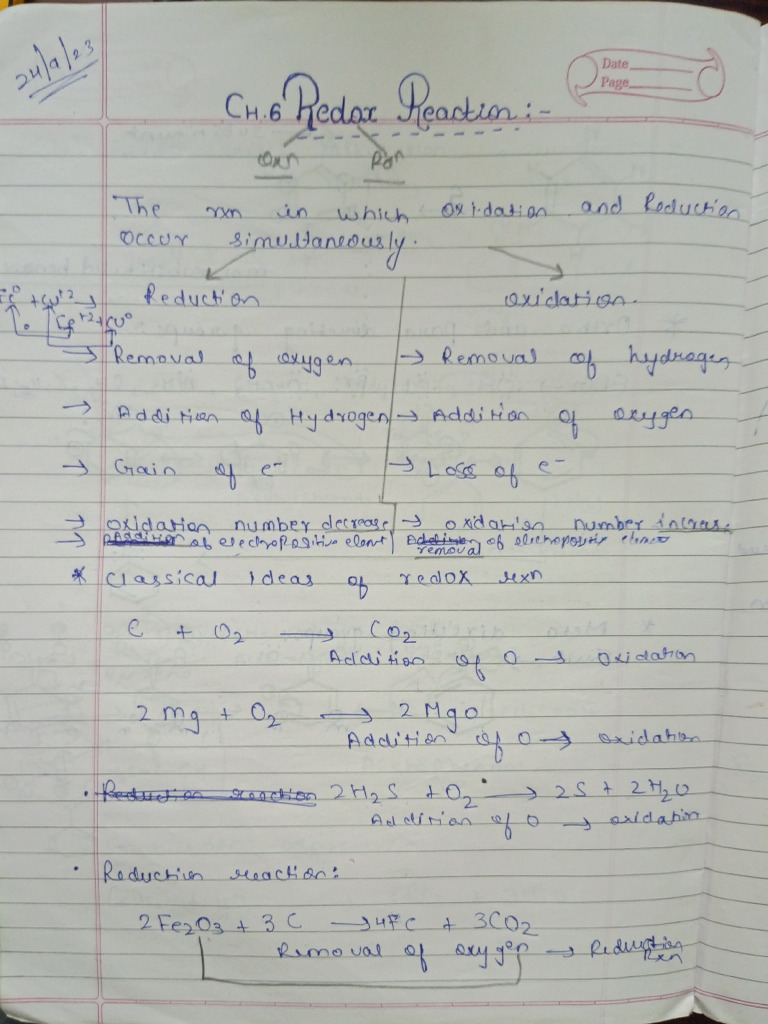 24/9/23
Date
Page
CH.6 Redox Reaction :-
Oxn Rdn
The rxn in which oxidation and Reduction
occur simultaneously.
Fe⁰ + Cu⁺² →
Fe⁺² + Cu⁰
Reduction oxidation.
→ Removal of oxygen → Removal of hydrogen
→ Addition of Hydrogen → Addition of oxygen
→ Gain of e⁻ → Loss of e⁻
→ oxidation number decrease → oxidation number increase
→ Addition of electropositive elemt Addition of electropositive elemnt
removal
* Classical Ideas of redox rxn
C + O₂ → CO₂
Addition of O → Oxidation
2 Mg + O₂ → 2 MgO
Addition of O → oxidation
• Reduction reaction 2H₂S + O₂ → 2S + 2H₂O
Addition of O → oxidation
• Reduction reaction:
2Fe₂O₃ + 3C → 4Fe + 3CO₂
Removal of oxygen → Reduction
Rxn